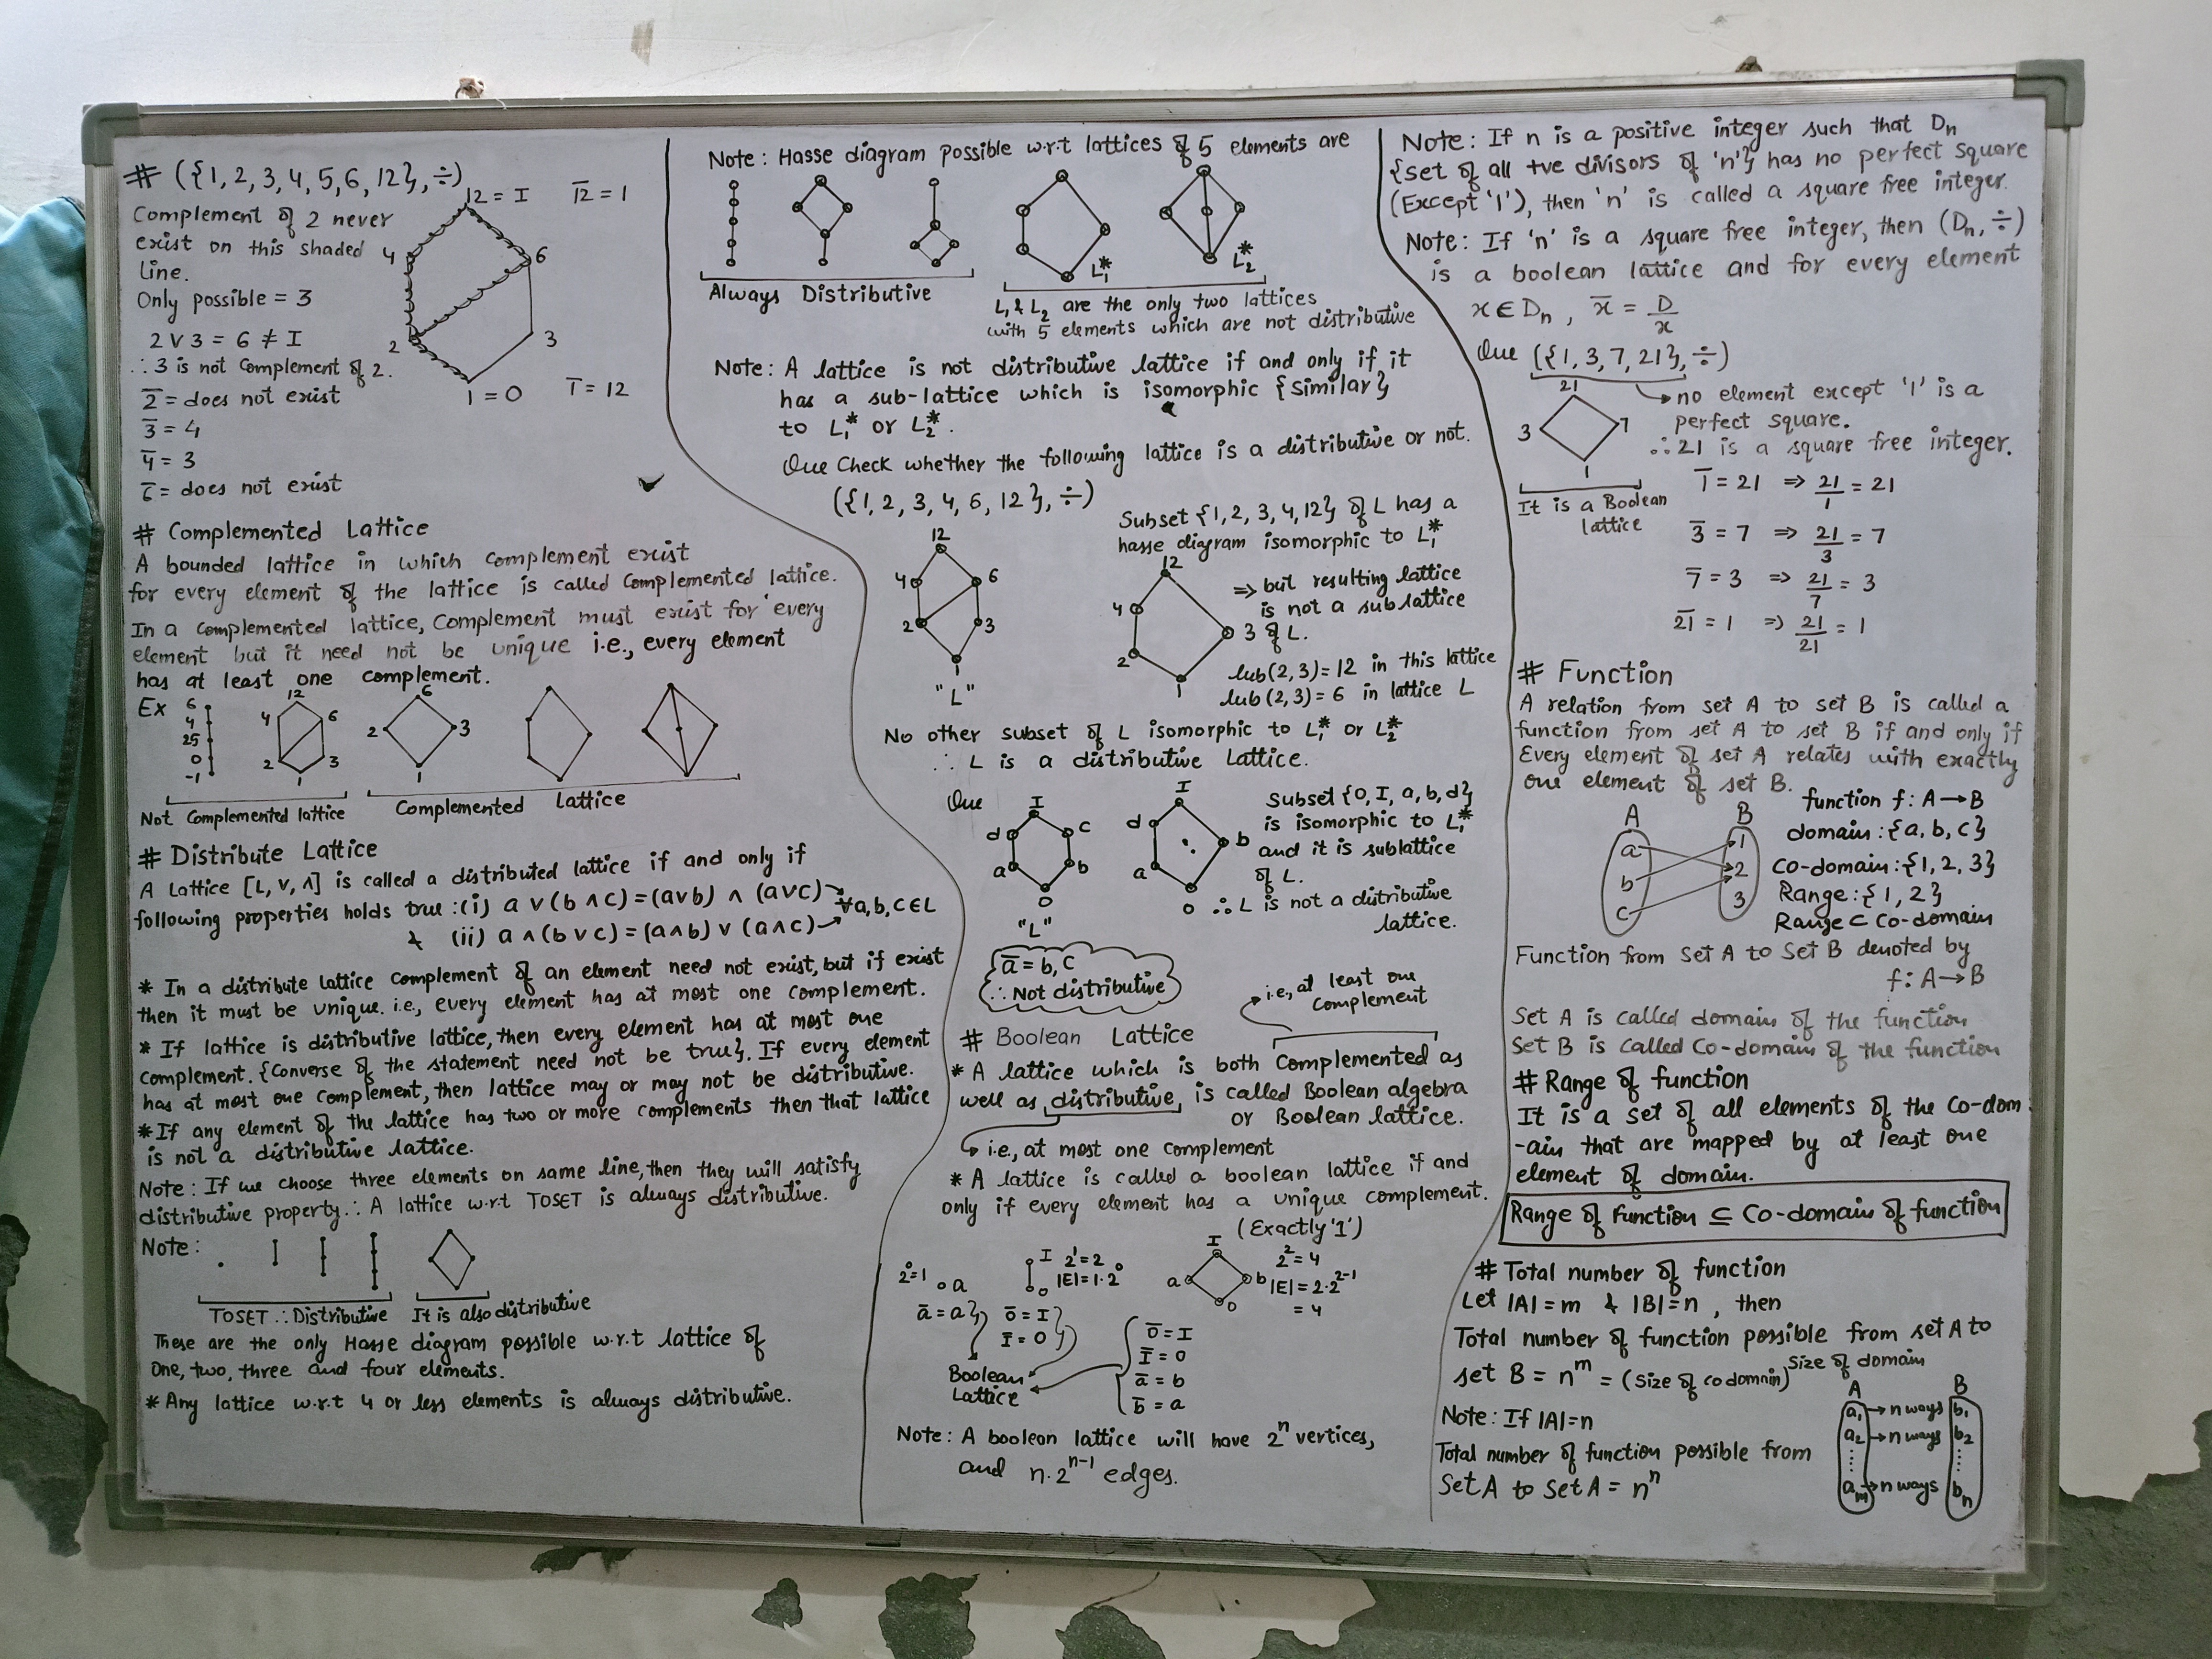 # ({1, 2, 3, 4, 5, 6, 12}, ÷)
12 = I
1̅2̅ = 1
Complement of 2 never
exist on this shaded
line.
4
6
Only possible = 3
2 ∨ 3 = 6 ≠ I
2
3
∴ 3 is not Complement of 2.
1 = 0
1̅ = 12
2̅ = does not exist
3̅ = 4
4̅ = 3
6̅ = does not exist
# Complemented Lattice
A bounded lattice in which complement exist
for every element of the lattice is called Complemented lattice.
In a complemented lattice, Complement must exist for every
element but it need not be unique i.e., every element
has at least one complement.
Ex
6
4
25
0
-1
12
4
6
2
3
1
6
2
3
1
Not Complemented lattice
Complemented Lattice
# Distribute Lattice
A Lattice [L, ∨, ∧] is called a distributed lattice if and only if
following properties holds true : (i) a ∨ (b ∧ c) = (a∨b) ∧ (a∨c)
∀a, b, c ∈ L
& (ii) a ∧ (b ∨ c) = (a∧b) ∨ (a∧c)
* In a distribute lattice complement of an element need not exist, but if exist
then it must be unique. i.e., every element has at most one complement.
* If lattice is distributive lattice, then every element has at most one
complement. {Converse of the statement need not be true}. If every element
has at most one complement, then lattice may or may not be distributive.
* If any element of the lattice has two or more complements then that lattice
is not a distributive lattice.
Note : If we choose three elements on same line, then they will satisfy
distributive property. ∴ A lattice w.r.t TOSET is always distributive.
Note :
TOSET ∴ Distributive
It is also distributive
These are the only Hasse diagram possible w.r.t lattice of
One, two, three and four elements.
* Any lattice w.r.t 4 or less elements is always distributive.
Note : Hasse diagram possible w.r.t lattices of 5 elements are
L₁*
L₂*
Always Distributive
L₁ & L₂ are the only two lattices
with 5 elements which are not distributive
Note : A lattice is not distributive lattice if and only if it
has a sub-lattice which is isomorphic {Similar}
to L₁* or L₂*.
Que Check whether the following lattice is a distributive or not.
({1, 2, 3, 4, 6, 12}, ÷)
Subset {1, 2, 3, 4, 12} of L has a
hasse diagram isomorphic to L₁*
12
4
6
2
3
1
"L"
12
4
2
3
1
⇒ but resulting lattice
is not a sublattice
of L.
lub(2, 3) = 12 in this lattice
lub(2, 3) = 6 in lattice L
No other subset of L isomorphic to L₁* or L₂*
∴ L is a distributive Lattice.
Que
I
d
c
a
b
0
"L"
I
d
b
a
0
Subset {0, I, a, b, d}
is isomorphic to L₁*
and it is sublattice
of L.
∴ L is not a distributive
lattice.
a̅ = b, c
∴ Not distributive
i.e., at least one
complement
# Boolean Lattice
* A lattice which is both Complemented as
well as distributive, is called Boolean algebra
or Boolean lattice.
i.e., at most one complement
* A lattice is called a boolean lattice if and
only if every element has a unique complement.
(Exactly '1')
2⁰=1
a
a̅ = a}
I
0
2¹ = 2
|E| = 1·2⁰
0̅ = I
I̅ = 0
I
a
b
0
2² = 4
|E| = 2·2²⁻¹
= 4
0̅ = I
I̅ = 0
a̅ = b
b̅ = a
Boolean
Lattice
Note : A boolean lattice will have 2ⁿ vertices,
and n·2ⁿ⁻¹ edges.
Note : If n is a positive integer such that Dn
{set of all +ve divisors of 'n'} has no perfect square
(Except '1'), then 'n' is called a square free integer.
Note : If 'n' is a square free integer, then (Dn, ÷)
is a boolean lattice and for every element
x ∈ Dn , x̅ = D/x
Que ({1, 3, 7, 21}, ÷)
21
3
7
1
no element except '1' is a
perfect square.
∴ 21 is a square free integer.
It is a Boolean
lattice
1̅ = 21 ⇒ 21/1 = 21
3̅ = 7 ⇒ 21/3 = 7
7̅ = 3 ⇒ 21/7 = 3
2̅1̅ = 1 ⇒ 21/21 = 1
# Function
A relation from set A to set B is called a
function from set A to set B if and only if
Every element of set A relates with exactly
one element of set B.
A
B
a
b
c
1
2
3
function f : A → B
domain : {a, b, c}
Co-domain : {1, 2, 3}
Range : {1, 2}
Range ⊂ Co-domain
Function from Set A to Set B denoted by
f : A → B
Set A is called domain of the function
Set B is called Co-domain of the function
# Range of function
It is a set of all elements of the Co-dom
-ain that are mapped by at least one
element of domain.
Range of Function ⊆ Co-domain of function
# Total number of function
Let |A| = m & |B| = n , then
Total number of function possible from set A to
set B = nᵐ = (Size of codomain)^Size of domain
Note : If |A| = n
Total number of function possible from
Set A to Set A = nⁿ
A
B
a₁ → n ways b₁
a₂ → n ways b₂
aₘ → n ways bₙ